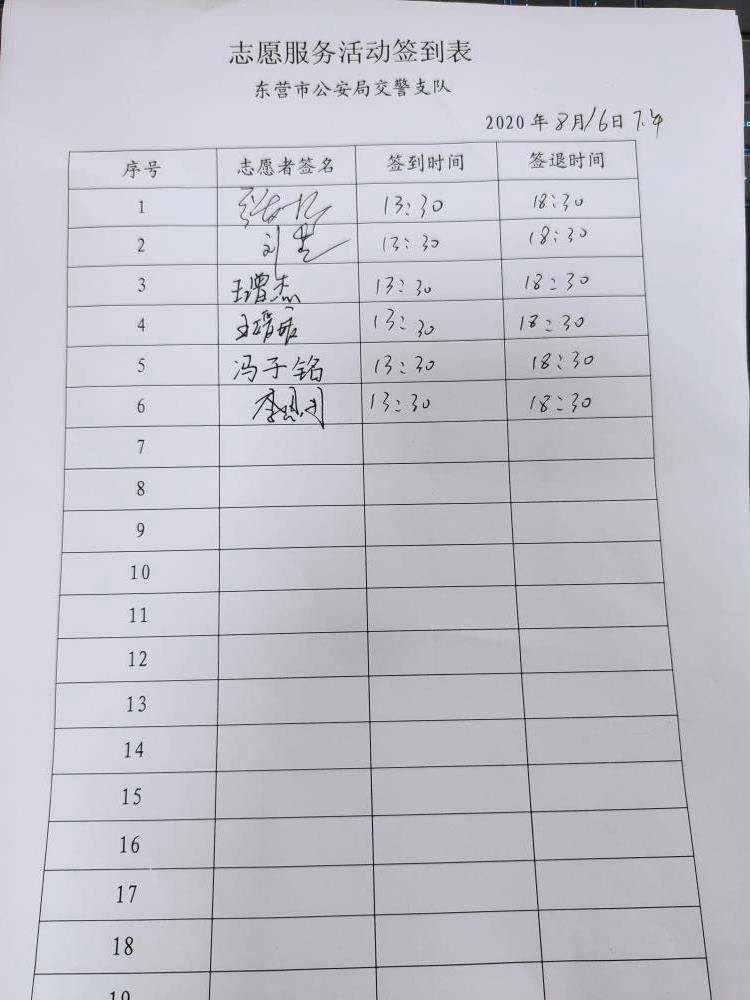 志愿服务活动签到表
东营市公安局交警支队
2020年8月16日 下午
序号 志愿者签名 签到时间 签退时间
1 13:30 18:30
2 刘 13:30 18:30
3 王增杰 13:30 18:30
4 13:30 18:30
5 冯子铭 13:30 18:30
6 李 13:30 18:30
7
8
9
10
11
12
13
14
15
16
17
18
19